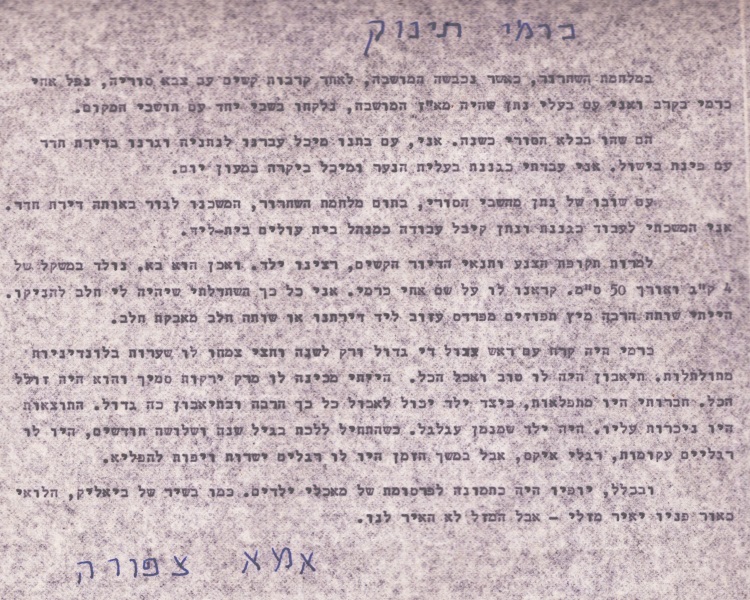 כרמי תינוק
במלחמת השחרור, כאשר נכבשה המושבה, לאחר קרבות קשים עם צבא סוריה, נפל אחי
כרמי בקרב ואני עם בעלי נתן שהיה מא"ז המושבה, נלקחו בשבי יחד עם תושבי המקום.
הם שהו בכלא הסורי כשנה. אני, עם בתנו מיכל עברנו לנתניה וגרנו בדירת חדר
עם פינת בישול. אני עבדתי כגננת בעלית הנער ומיכל ביקרה במעון יום.
עם שובו של נתן מהשבי הסורי, בתום מלחמת השחרור, המשכנו לגור באותה דירת חדר.
אני המשכתי לעבוד כגננת ונתן קיבל עבודה כמנהל בית עולים בית-ליד.
למרות תקופת הצנע ותנאי הדיור הקשים, רצינו ילד. ואכן הוא בא. נולד במשקל של
4 ק"ג ואורך 50 ס"מ. קראנו לו על שם אחי כרמי. אני כל כך השתדלתי שיהיה לי חלב להניקו.
הייתי שותה הרבה מיץ תפוזים מפרדס עזוב ליד דירתנו או שותה חלב מאבקת חלב.
כרמי היה קרח עם ראש עגול די גדול ורק לשנה וחצי צמחו לו שערות בלונדיניות
מתולתלות. תיאבון היה לו טוב ואכל הכל. הייתי מכינה לו מרק ירקות סמיך והוא היה זולל
הכל. חברותי היו מתפלאות, כיצד ילד יכול לאכול כל כך הרבה ובתיאבון כה גדול. התוצאות
היו ניכרות עליו. היה ילד שמנמן עגלגל. כשהתחיל ללכת בגיל שנה ושלושה חודשים, היו לו
רגליים עקומות, רגלי איקס, אבל במשך הזמן היו לו רגלים ישרות ויפות להפליא.
ובכלל, יופיו היה כתמונה לפרסומת של מאכלי ילדים. כמו בשיר של ביאליק, הלואי
כאור פניו יאיר מזלי - אבל המזל לא האיר לנו.
אמא צפורה